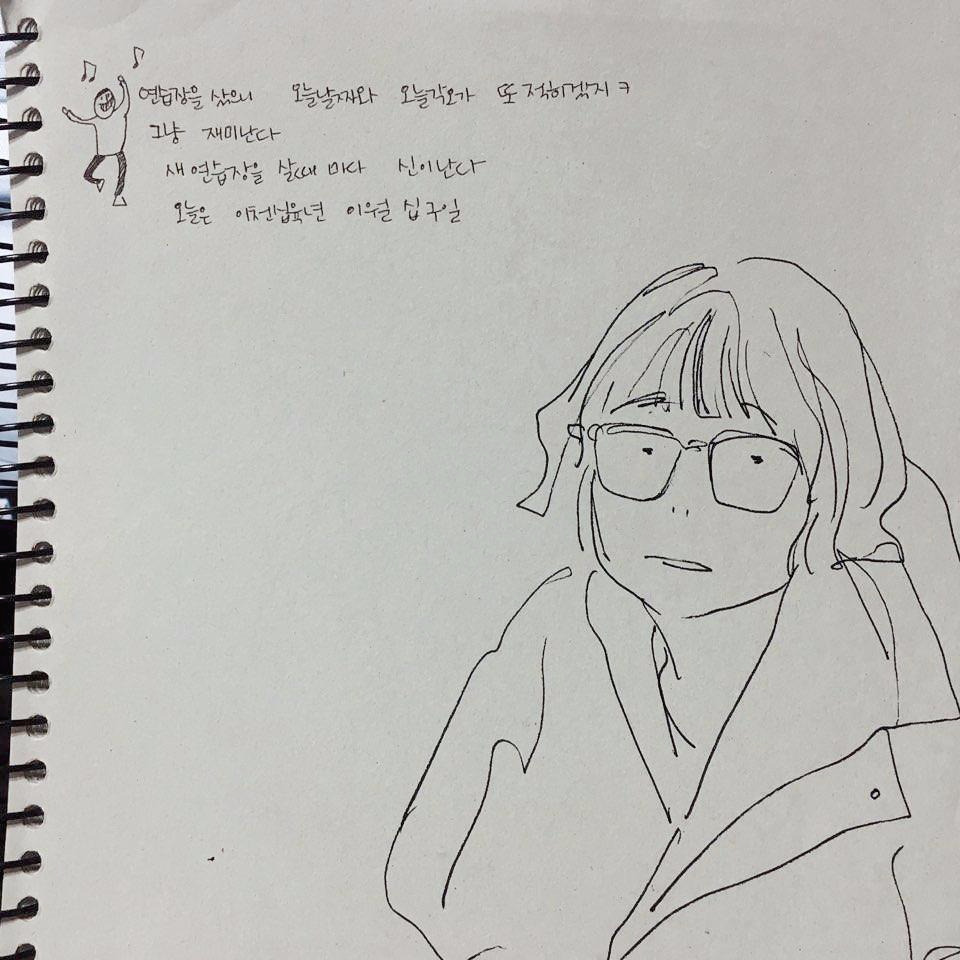 연습장을 샀으니 오늘날짜와 오늘각오가 또 적히겠지 ㅋ
그냥 재미난다
새 연습장을 살때 마다 신이난다
오늘은 이천십육년 이월 십구일